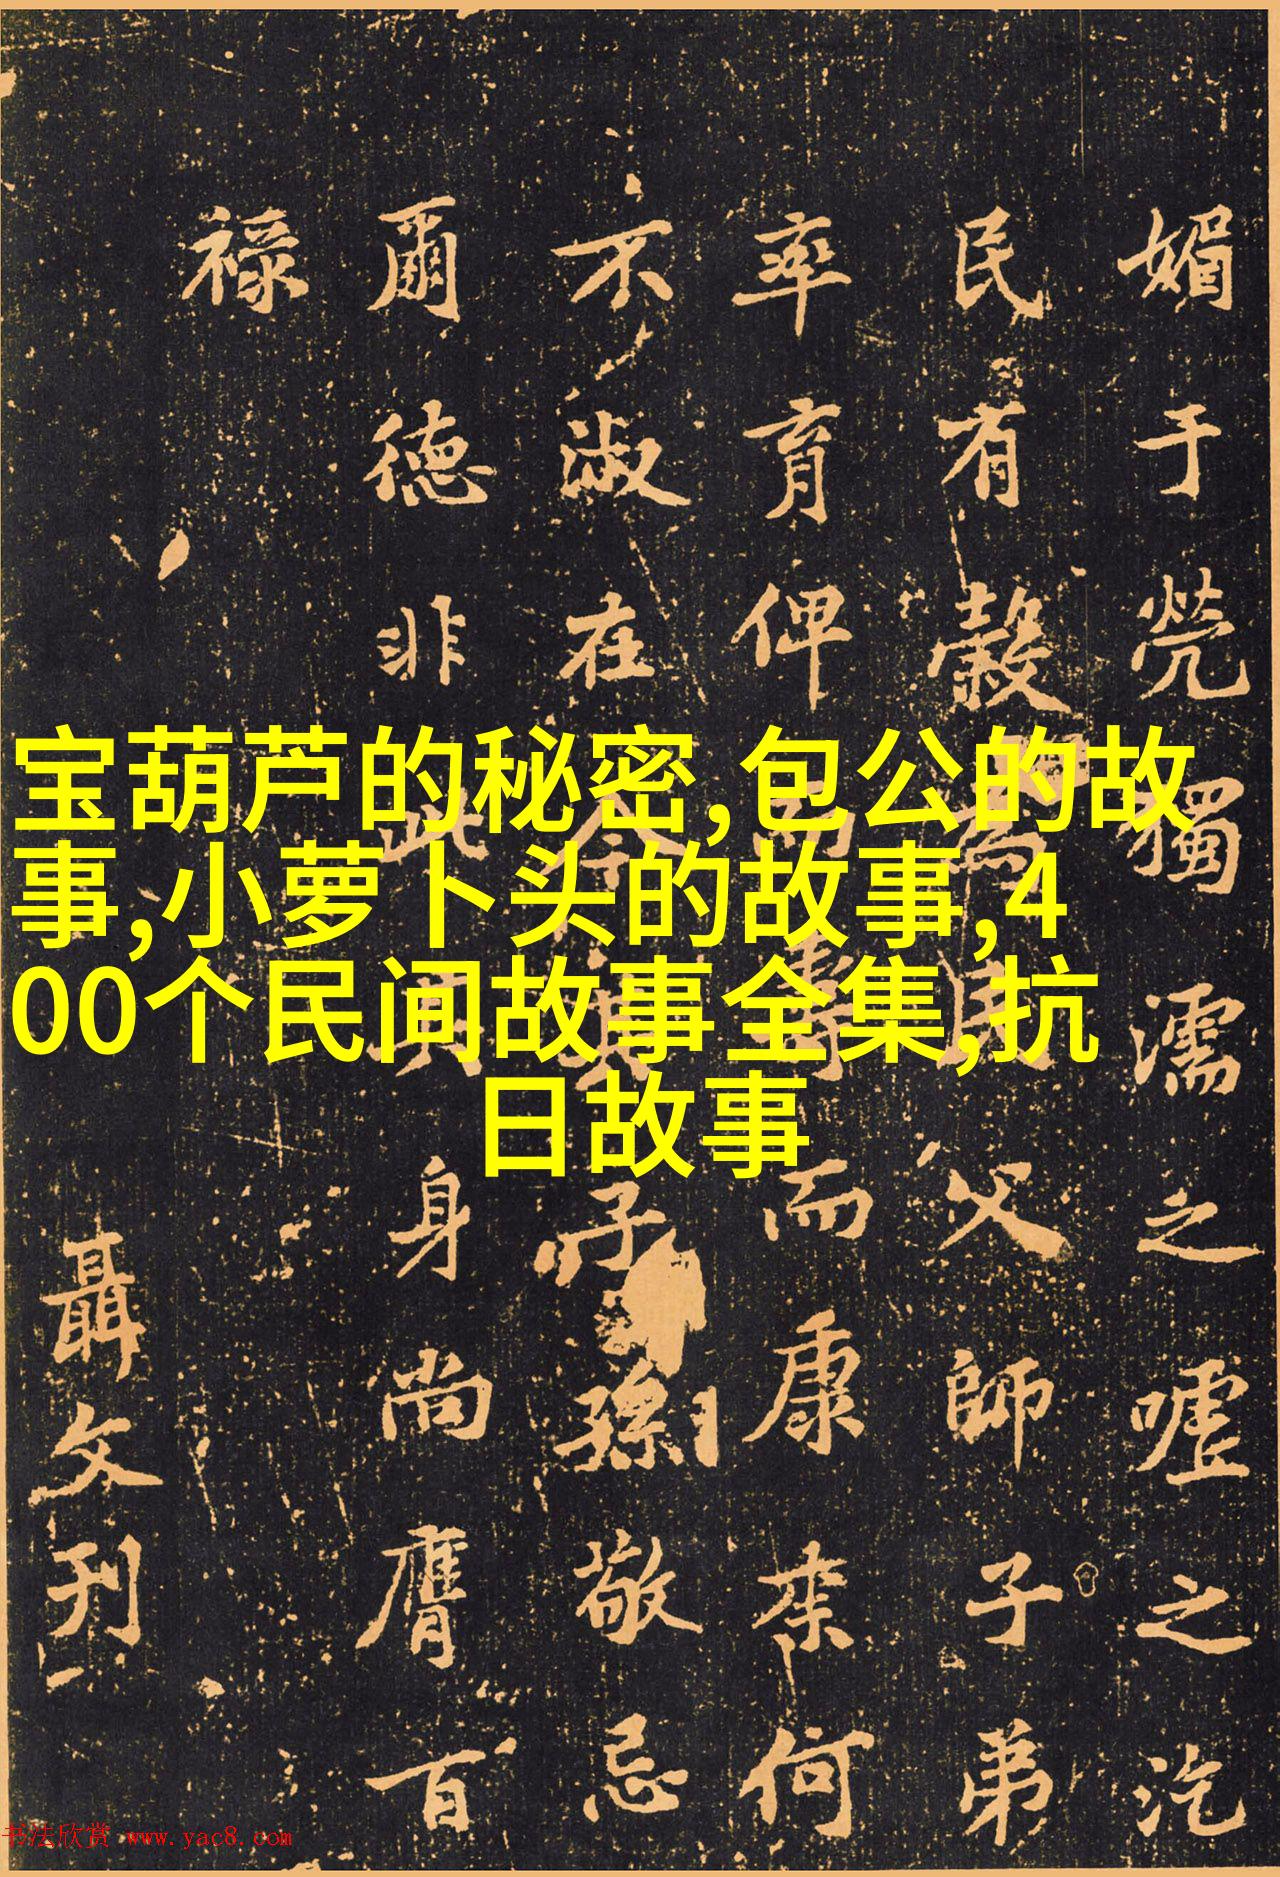 宝葫芦的秘密,包公的故
事,小萝卜头的故事,4
00个民间故事全集,抗
日故事
媚于煢獨濡之嘘之汔
民有穀為民父師子弟
率育俾而壽而康来何
不淑在今其子孫敬忌
爾德非此其身尚膺百
禄
聶文刊
书法欣赏 www.yac8.com